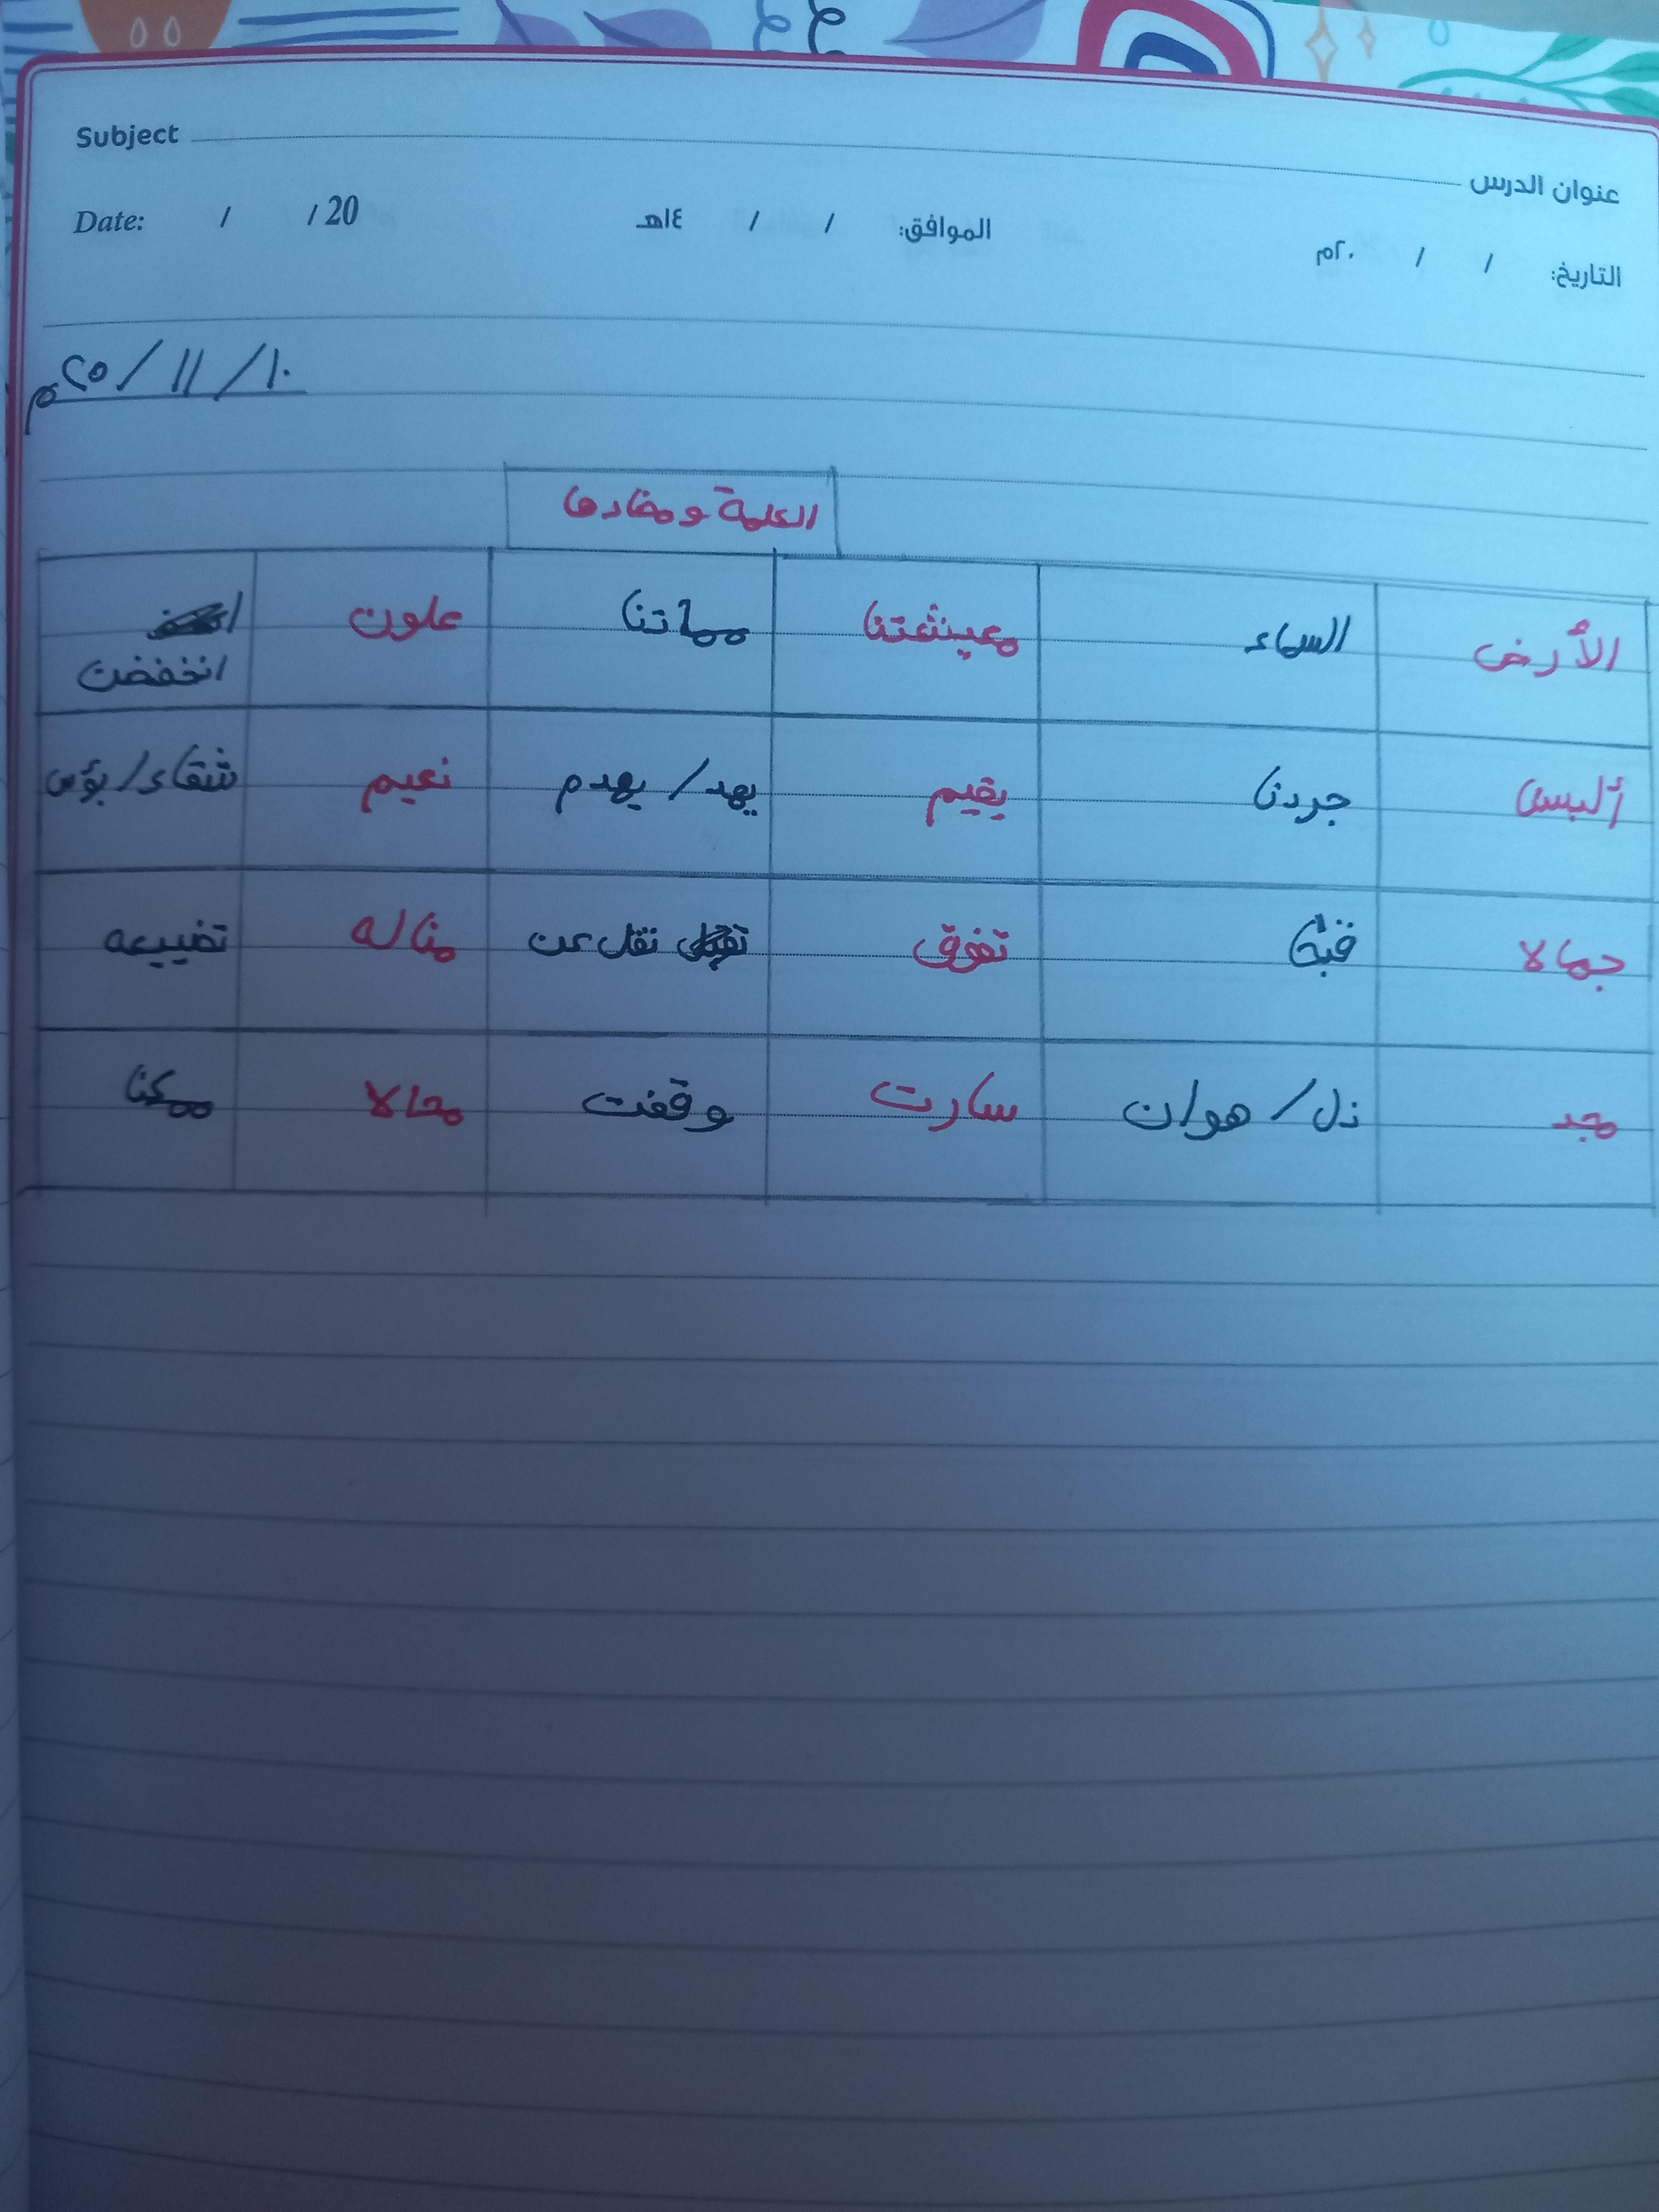 Subject
عنوان الدرس
التاريخ: / / ٢٠م الموافق: / / ١٤هـ Date: / / 20
١٠ / ١١ / ٢٥م
الكلمة ومضادها
الأرض السماء معيشتنا مماتنا علون انخفضت
ألبسن جردنا يقيم يهد / يهدم نعيم شقاء / بؤس
جمالا قبحًا تفوق تقل عن مناله تضييعه
مجد ذل / هوان سارت وقفت محالا ممكنا